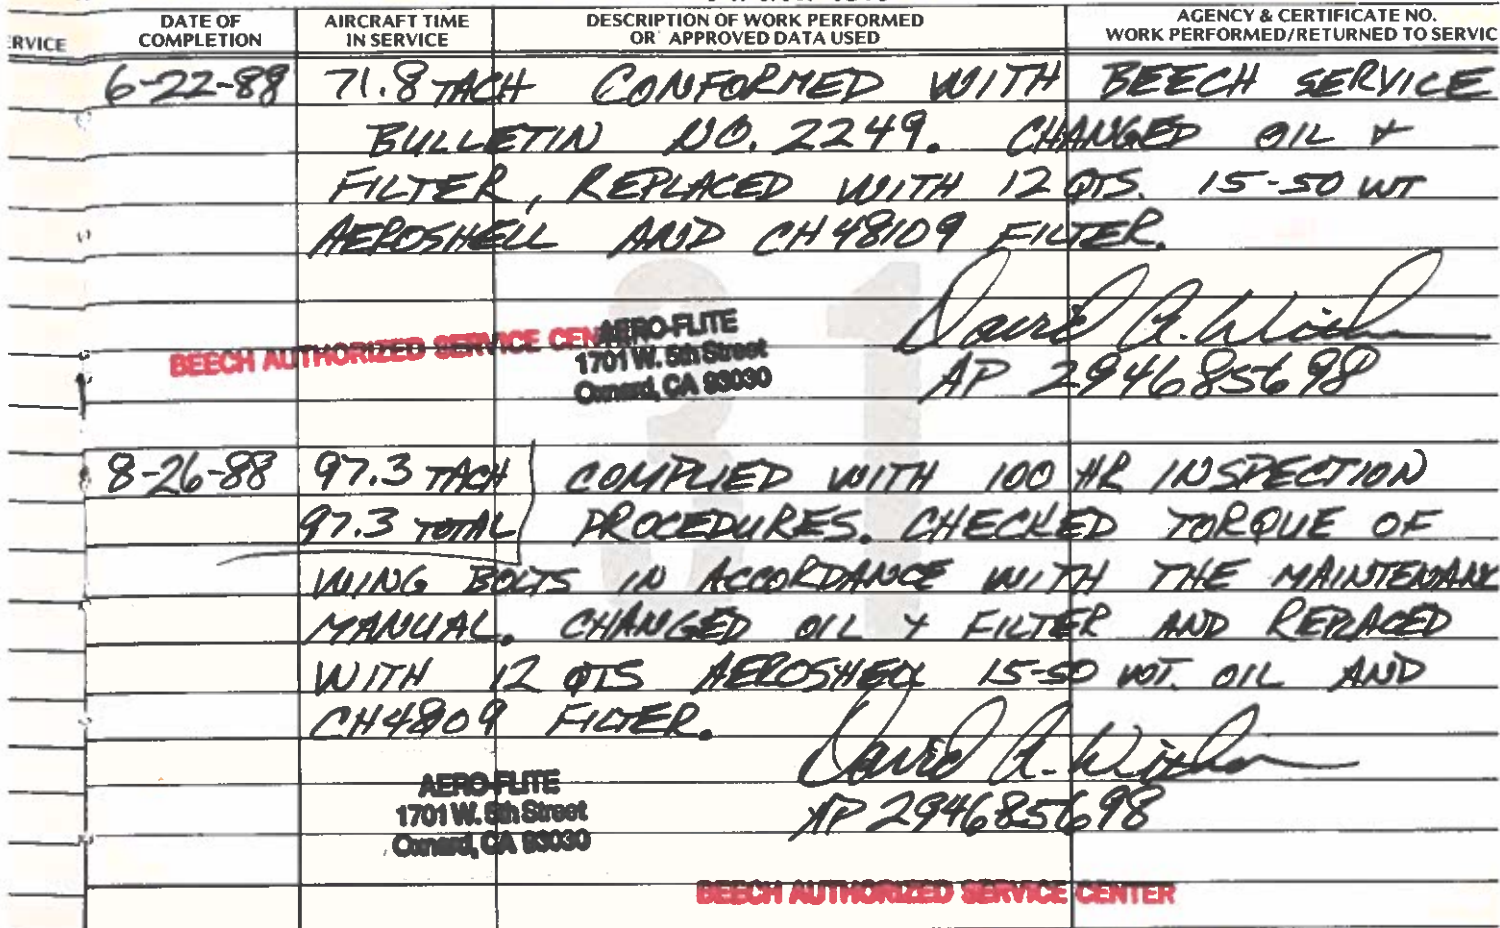 DATE OF COMPLETION
AIRCRAFT TIME IN SERVICE
DESCRIPTION OF WORK PERFORMED OR APPROVED DATA USED
AGENCY & CERTIFICATE NO. WORK PERFORMED/RETURNED TO SERVIC
ERVICE
6-22-88 71.8 TACH CONFORMED WITH BEECH SERVICE
BULLETIN NO. 2249. CHANGED OIL &
FILTER, REPLACED WITH 12 QTS. 15-50 WT
AEROSHELL AND CH48109 FILTER.
David A.
BEECH AUTHORIZED SERVICE CEN
AERO-FLITE
1701 W. 5th Street
Oxnard, CA 93030
AP 294685698
8-26-88 97.3 TACH COMPLIED WITH 100 HR INSPECTION
97.3 TOTAL PROCEDURES. CHECKED TORQUE OF
WING BOLTS IN ACCORDANCE WITH THE MAINTENANC
MANUAL. CHANGED OIL & FILTER AND REPLACED
WITH 12 QTS AEROSHELL 15-50 WT. OIL AND
CH4809 FILTER.
David A.
AERO-FLITE
1701 W. 5th Street
Oxnard, CA 93030
AP 294685698
BEECH AUTHORIZED SERVICE CENTER
31